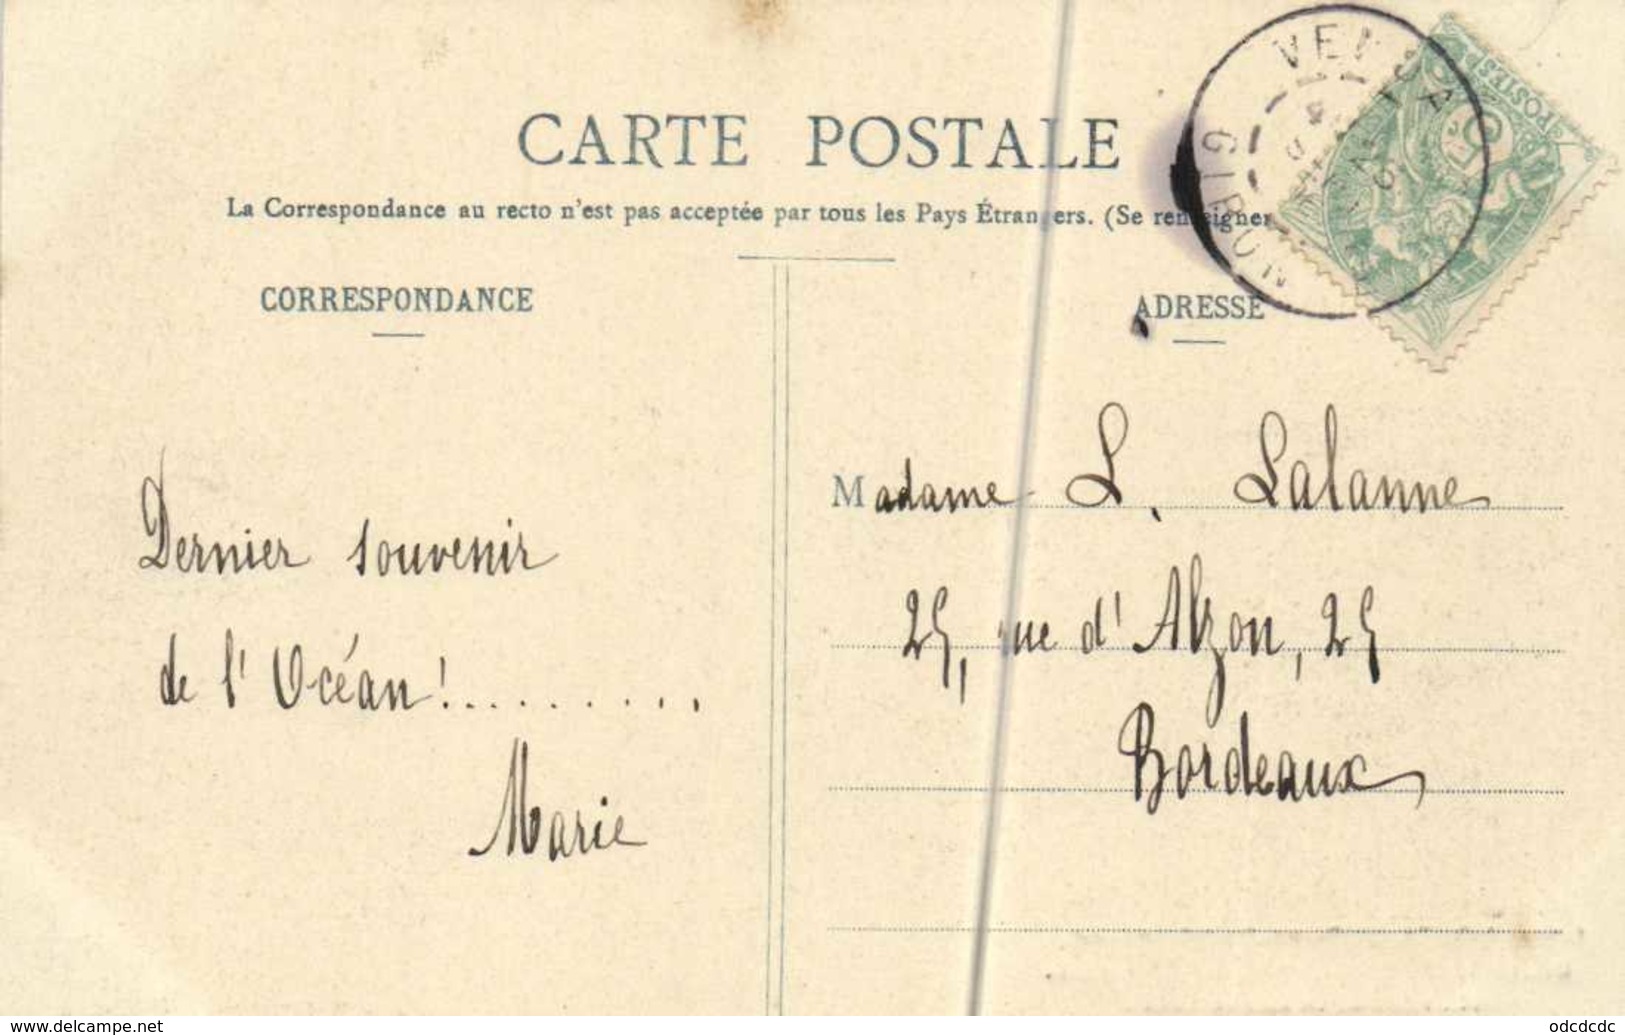 CARTE POSTALE
La Correspondance au recto n'est pas acceptée par tous les Pays Étrangers. (Se renseigner
CORRESPONDANCE
ADRESSE
Dernier souvenir
de l'Océan!.........
Marie
Madame L. Lalanne
25, rue d'Alzon, 25
Bordeaux
POSTES
www.delcampe.net
odcdcdc